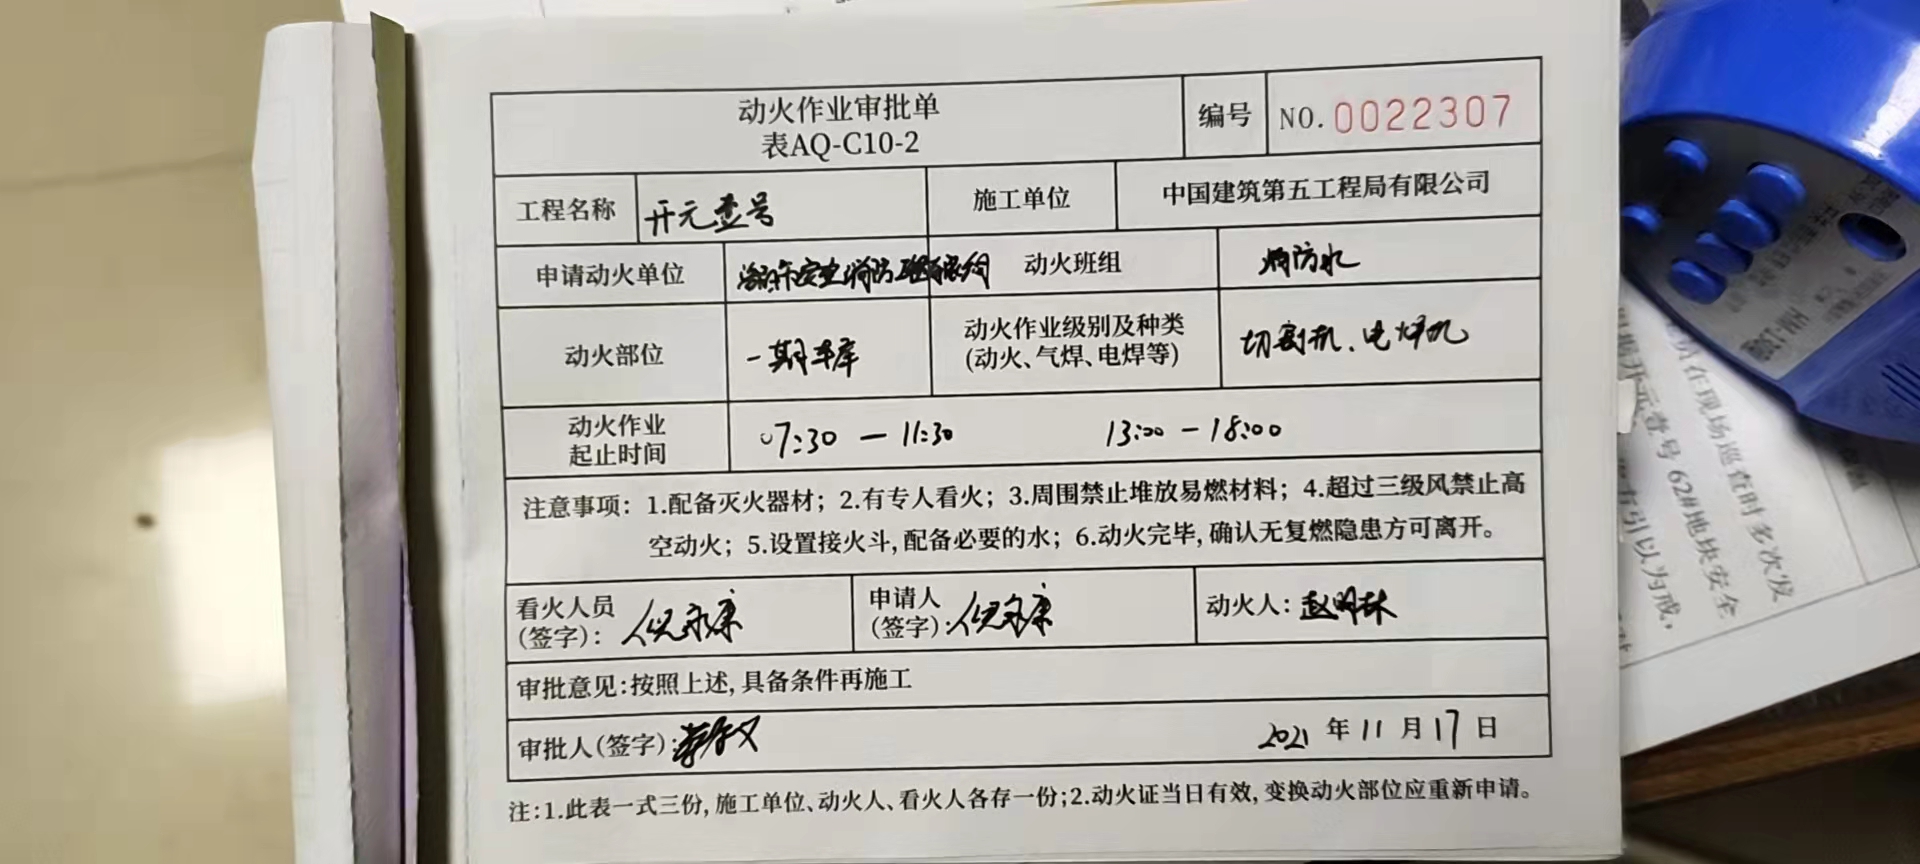 动火作业审批单
表AQ-C10-2
编号
NO.0022307
工程名称
开元壹号
施工单位
中国建筑第五工程局有限公司
申请动火单位
动火班组
消防水
动火部位
一期车库
动火作业级别及种类
(动火、气焊、电焊等)
切割机、电焊机
动火作业
起止时间
07:30 — 11:30 13:00 — 18:00
注意事项：1.配备灭火器材；2.有专人看火；3.周围禁止堆放易燃材料；4.超过三级风禁止高
空动火；5.设置接火斗,配备必要的水；6.动火完毕,确认无复燃隐患方可离开。
看火人员
(签字)：倪永康
申请人
(签字):倪永康
动火人：赵明林
审批意见:按照上述,具备条件再施工
审批人(签字):
2021 年 11 月 17 日
注:1.此表一式三份,施工单位、动火人、看火人各存一份;2.动火证当日有效,变换动火部位应重新申请。
在现场巡查时多次发
开元壹号 62#地块安全
引以为戒,